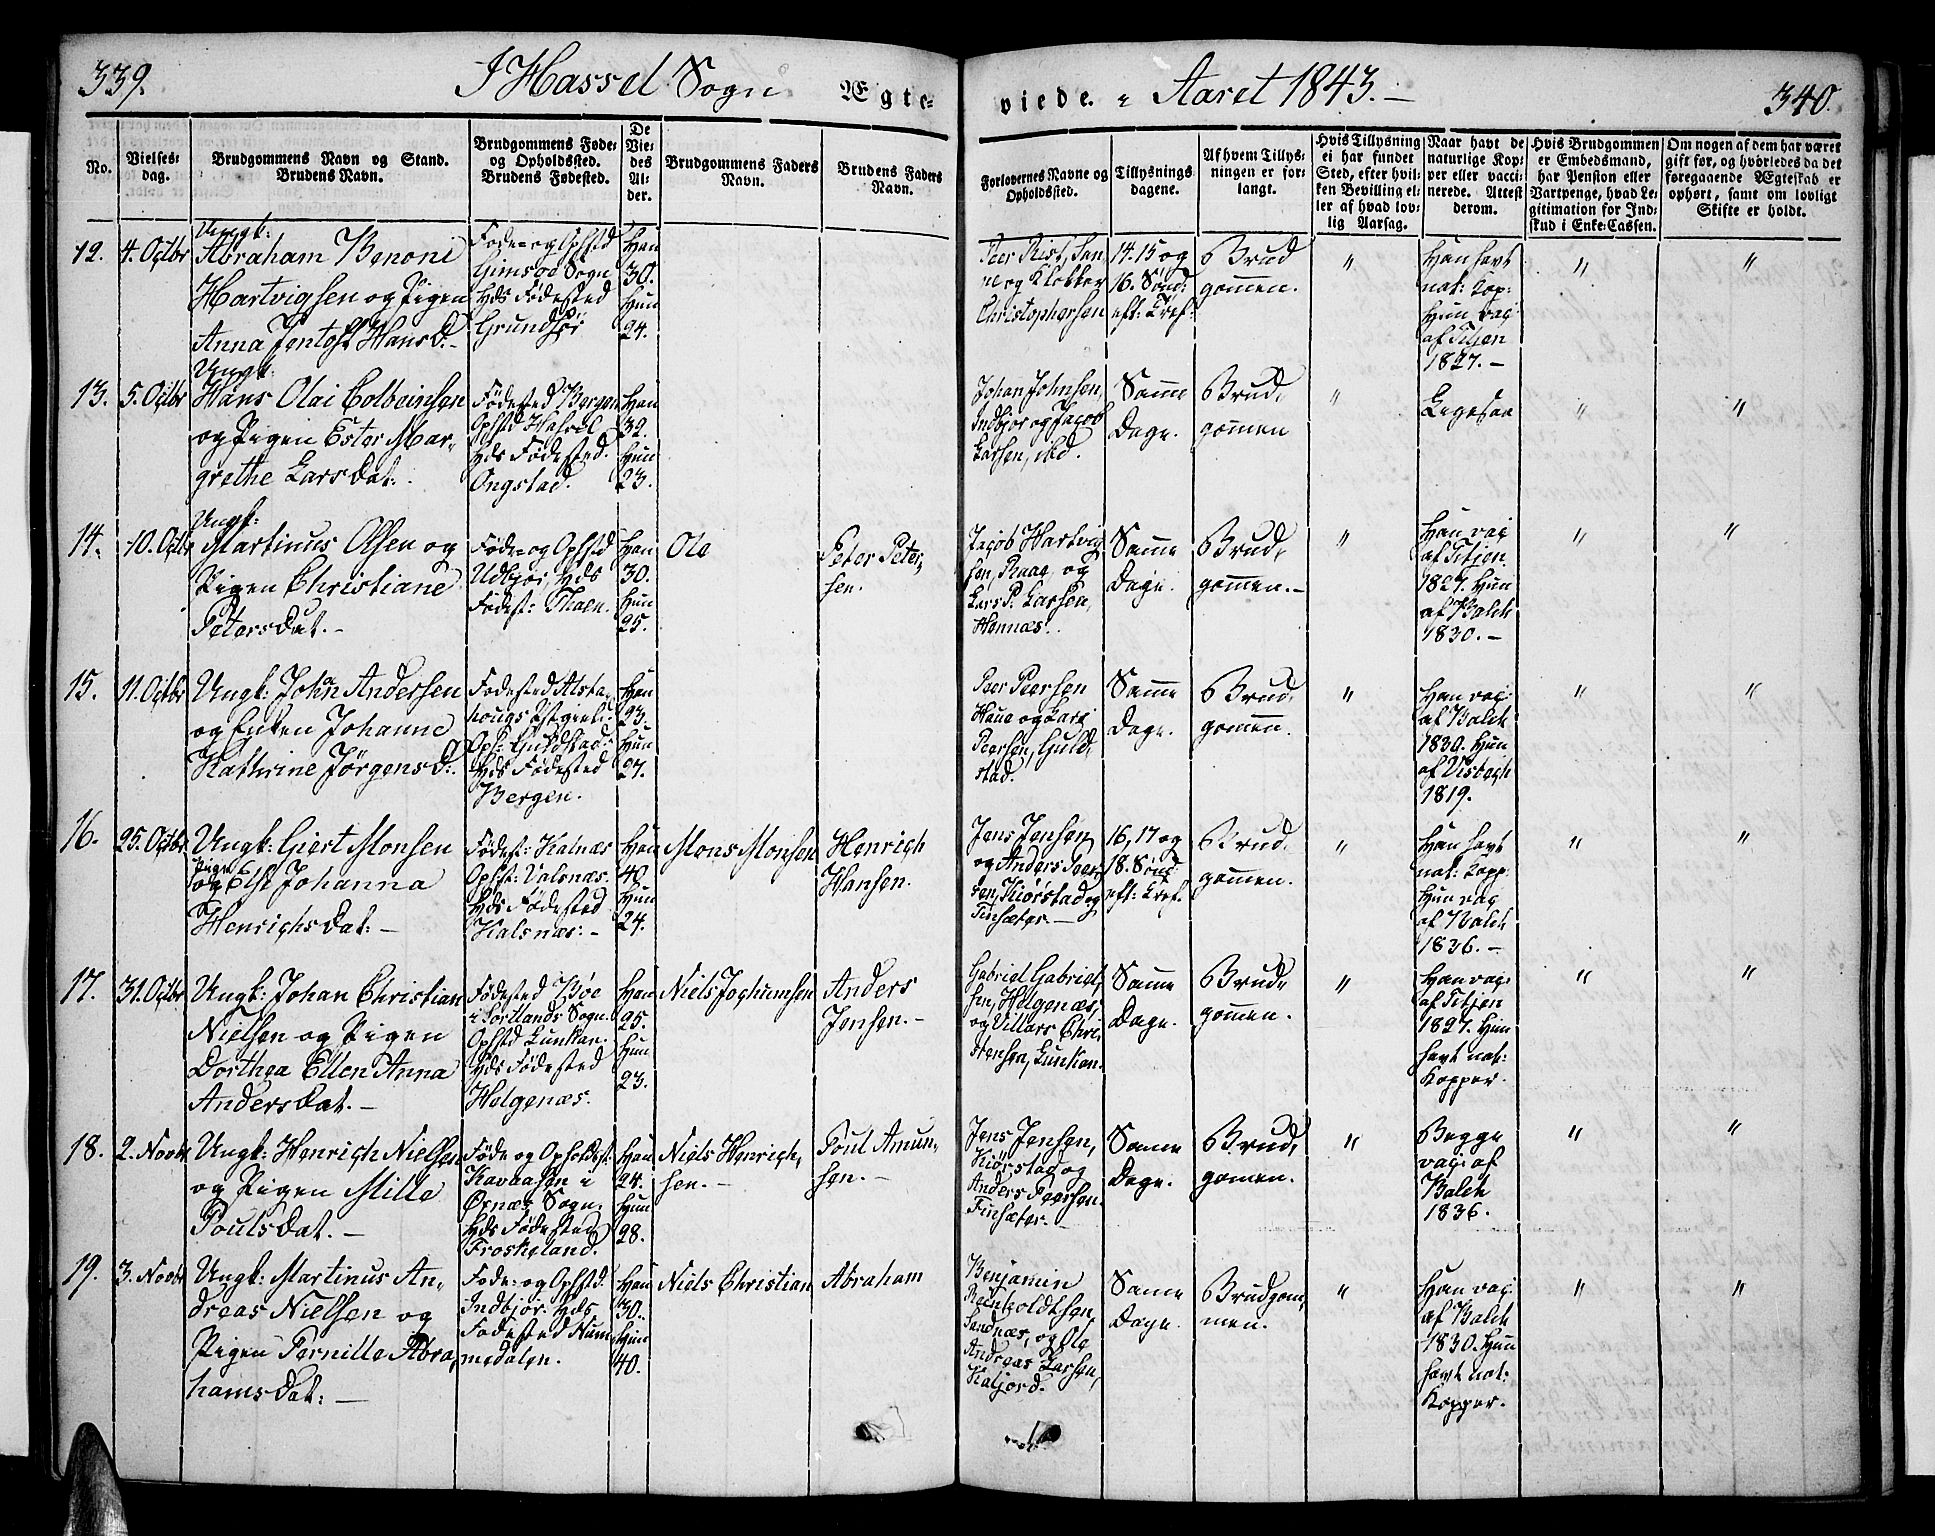 339.
I Hassel Sogn Ægte-
viede. i Aaret 1843.
340.
No.
Vielses-
dag.
Brudgommens Navn og Stand.
Brudens Navn.
Brudgommens Føde-
og Opholdssted.
Brudens Fødested.
De
Vie-
des
Al-
der.
Brudgommens Faders
Navn.
Brudens Faders
Navn.
Forlovernes Navne og
Opholdssted.
Tillysnings
dagene.
Af hvem Tillys-
ningen er for-
langt.
Hvis Tillysning
ei har fundet
Sted, efter hvil-
ken Bevilling el-
ler af hvad lov-
lig Aarsag.
Naar havt de
naturlige Kop-
per eller vacci-
nerede. Attest
derom.
Hvis Brudgommen
er Embedsmand,
har Pension eller
Vartpenge, hvad Le-
gitimation for Ind-
skud i Enke-Cassen.
Om nogen af dem har været
gift før, og hvorledes da det
foregaaende Ægteskab er
ophørt, samt om lovligt
Skifte er holdt.
12.
4. Octbr
Ungk:
Abraham Benoni
Hartvigsen og Pigen
Anna Jentoft Hansd.-
Føde- og Ophstd
Gimsøe Sogn
Hds Fødested
Grundfør
Han
30.
Hun
24.
Peer Rist,
og Klokker
Christophersen
14. 15 og
16. Sønd:
eft: Tref:
Brud
gommen.
"
Han havt
nat: Kop:
Hun vac:
af Titjen
1827.-
"
"
13.
5. Octbr
Ungk:
Hans Olai Colbeinsen
og Pigen Ester Mar-
grethe LarsDat:.
Fødested Bergen
Ophstd Hassel
Hds Fødested.
Ongstad.
Han
32.
Hun
23.
Johan Johnsen,
Indbjor og Jacob
Larsen, ibd.
Samme
Dage.
Brud,
gommen
"
Ligesaa
"
"
14.
10. Octbr
Ungk:
Martinus Olsen og
Pigen Christiane
PetersDat.-
Føde- og Ophstd
Udbjor, Hds
Fødest:
Han
30.
Hun
25.
Ole
Peter Peter-
sen.
Jacob Hartvig
sen, og
Lars P. Larsen,
Hennæs.
Samme
Dage.
Brud,
gommen.-
"
Han vac
af Titjen
1827. Hun
af Balch
1830.-
"
"
15.
11. Octbr
Ungk: Johan Andersen
og Enken Johanne
Kathrine JørgensD:.
Fødested Alsta-
houg Præstgield:
Oph: Guldstad.
Hds Fødested
Bergen.
Han
23.
Hun
27.
Peer Peersen
og Lars
Peersen, Guld,
stad.
Samme
Dage.
Brud,
gommen.
"
Han vac:
af Balch
1830. Hun
af
1819.
"
"
16.
25. Octbr
Ungk: Giert Monsen
Pigen
og Else Johanna
HenrichsDat:-
Fødest: Kalsnæs
Ophst: Valsnæs.
Hds Fødested
Kalsnæs:-
Han
40
Hun
24.
Mons Monsen
Henrich
Hansen.
Jens Jensen
og Anders Peer-
sen, Kiørstad og
Finsæter.-
16, 17 og
18. Sønd:
eft: Tref.
Brud,
gommen.
"
Han havt
nat: Kopp:
Hun vac
af Balch
1836.-
"
"
17.
31. Octbr
Ungk: Johan Christian
Nielsen og Pigen
Dorthea Ellen Anna
AndersDat.-
Fødested Bøe
i Sortlands Sogn.
Ophstd Lunkan.
Hds Fødested
Helgenæs.
Han
25.
Hun
23.
Niels Jochumsen
Anders
Jensen.-
Gabriel Gabriel,
sen, Helgenæs,
og Villars Chri-
stensen, Lunkan.
Samme
Dage.
Brud,
gommen.
"
Han vac:
af Titjen
1827. Hun
havt nat:
Kopper.
"
"
18.
2. Novbr
Ungk: Henrich Nielsen
og Pigen Mille
PoulsDat.-
Føde og Opholdst:
Kavaasen i
Øxnæs Sogn.
Hds Fødested
Froskeland.
Han
24.
Hun
28.
Niels Henrich,
sen.-
Poul Amun-
sen.-
Jens Jensen,
Kiørstad og
Anders Peersen.
Finsæter.-
Samme
Dage.
Brud,
gommen.
"
Begge
vac: af
Balch
1836.
"
"
19.
3. Novbr
Ungk: Martinus An-
dreas Nielsen og
Pigen Pernille Abra,
hamsDat:-
Føde- og Ophstd.
Indbjor. Hds
Fødested Num,
medalen.
Han
30.
Hun
40.
Niels Christian
Abraham
Benjamin
Reinholdtsen,
Sandnæs, og Ole
Andreas Larsen,
Kaljord.
Samme
Dage.
Brudgom,
men.
"
Han vac:
af Balch
1830. Hun
havt nat:
Kopper.
"
"